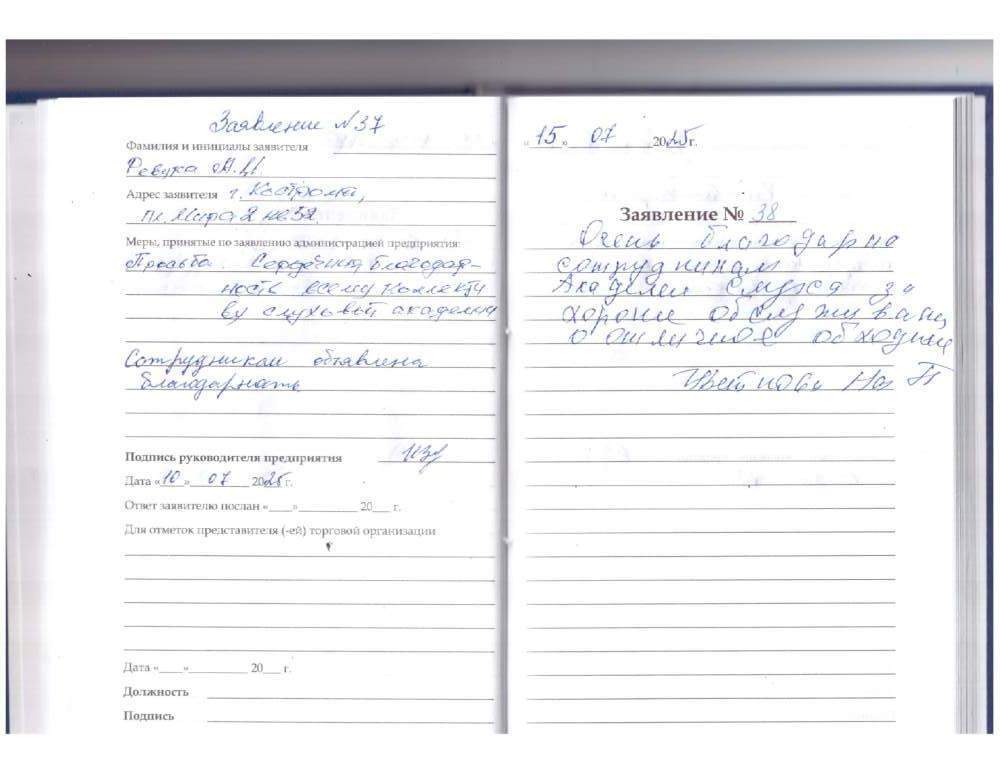 Заявление № 37
Фамилия и инициалы заявителя
Ревука
Адрес заявителя г. Кострома,
пл. Мира 2
Меры, принятые по заявлению администрацией предприятия:
Просьба. Сердечная благодар-
ность всему коллекти
ву слуховой академии
Сотрудникам объявлена
благодарность
Подпись руководителя предприятия
Дата «10» 07 2025 г.
Ответ заявителю послан «____»__________ 20___ г.
Для отметок представителя (-ей) торговой организации
Дата «____»__________ 20___ г.
Должность
Подпись
«15» 07 2025 г.
Заявление № 38
Очень благодарна
сотрудникам
Академии слуха за
хорошее обслуживани
отличное обхождени